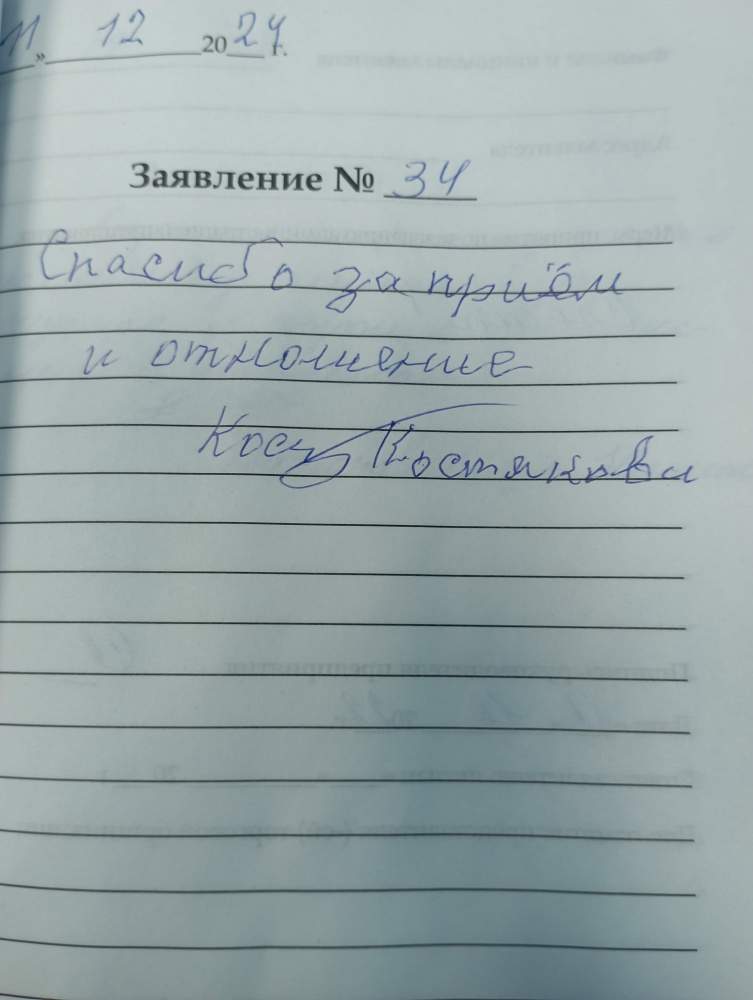 11 » 12 2024 г.
Заявление № 34
Спасибо за приём
и отношение
Костяковы